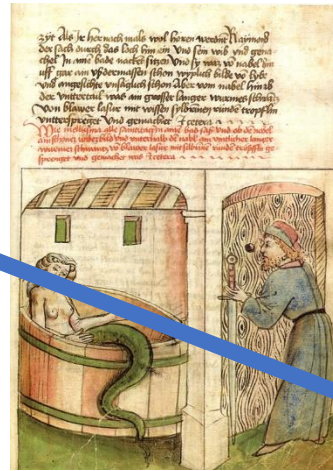 zyt Als Ir her nach mals wol hören werdent Raymond
der sach durch das loch hin ein Und sin wib und gema
chel In ains bade nacket sitzen Und sy waz vo nabel hin
uff gar ain usdermassen schon wyplich bilde vo libe
und angesichte unsäglich schon Aber vom nabel hinab
der untertail was ain grosser langer wurmes schwantz
Von blawer lasure mit wissen sylbrinen runde tröpflin
untersprenget Und gemachet Et cetera
Wie alle samstag in ains bad sass und ob de nabel
ain schön wibesbild und unterhalb de nabel ain langer
wurmes schwantz vo blawer lasure mit silbrin runde tröpflin ge
sprenget und gemachet was Et cetera